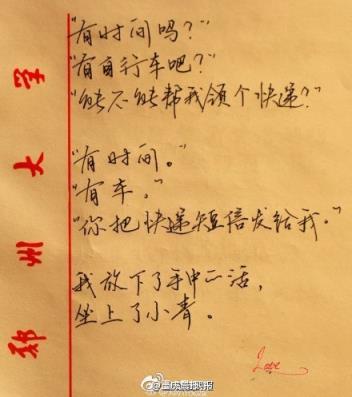 "有时间吗?"
"有自行车吧?"
"能不能帮我领个快递?"
"有时间。"
"有车。"
"你把快递短信发给我。"
我放下了手中的活,
坐上了小青。
郑州大学
Love